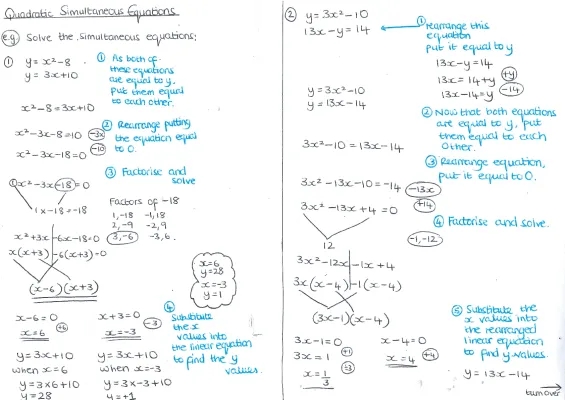 Quadratic Simultaneous Equations
e.g) Solve the simultaneous equations;
① y = x²-8
y = 3x+10
① As both of
these equations
are equal to y,
put them equal
to each other.
x²-8 = 3x+10
x²-3x-8=10 -3x
x²-3x-18=0 -10
② Rearrange putting
the equation equal
to 0.
③ Factorise and
solve
①x²-3x-18=0
1x-18=-18
Factors of -18
1,-18 -1,18
2,-9 -2,9
3,-6 -3,6.
x²+3x-6x-18=0
x(x+3)-6(x+3)=0
(x-6)(x+3)
x=6
y=28
x=-3
y=1
x-6=0 x+3=0
x=6 +6 x=-3 -3
④ Substitute
the x
values into
the linear equation
to find the y
values.
y=3x+10 y=3x+10
when x=6 when x=-3
y=3x6+10 y=3x-3+10
y=28 y=+1
② y=3x²-10
13x-y=14
① Rearrange this
equation
put it equal to y
13x-y=14
13x=14+y +y
13x-14=y -14
y=3x²-10
y=13x-14
② Now that both equations
are equal to y, put
them equal to each
other.
3x²-10=13x-14
③ Rearrange equation,
put it equal to 0.
3x²-13x-10=-14 -13x
3x²-13x+4=0 +14
④ Factorise and solve.
12
-1,-12
3x²-12x-1x+4
3x(x-4)-1(x-4)
(3x-1)(x-4)
3x-1=0 x-4=0
3x=1 +1 x=4 +4
x=1/3 ÷3
⑤ Substitute the
x values into
the rearranged
linear equation
to find y values.
y=13x-14
turn over